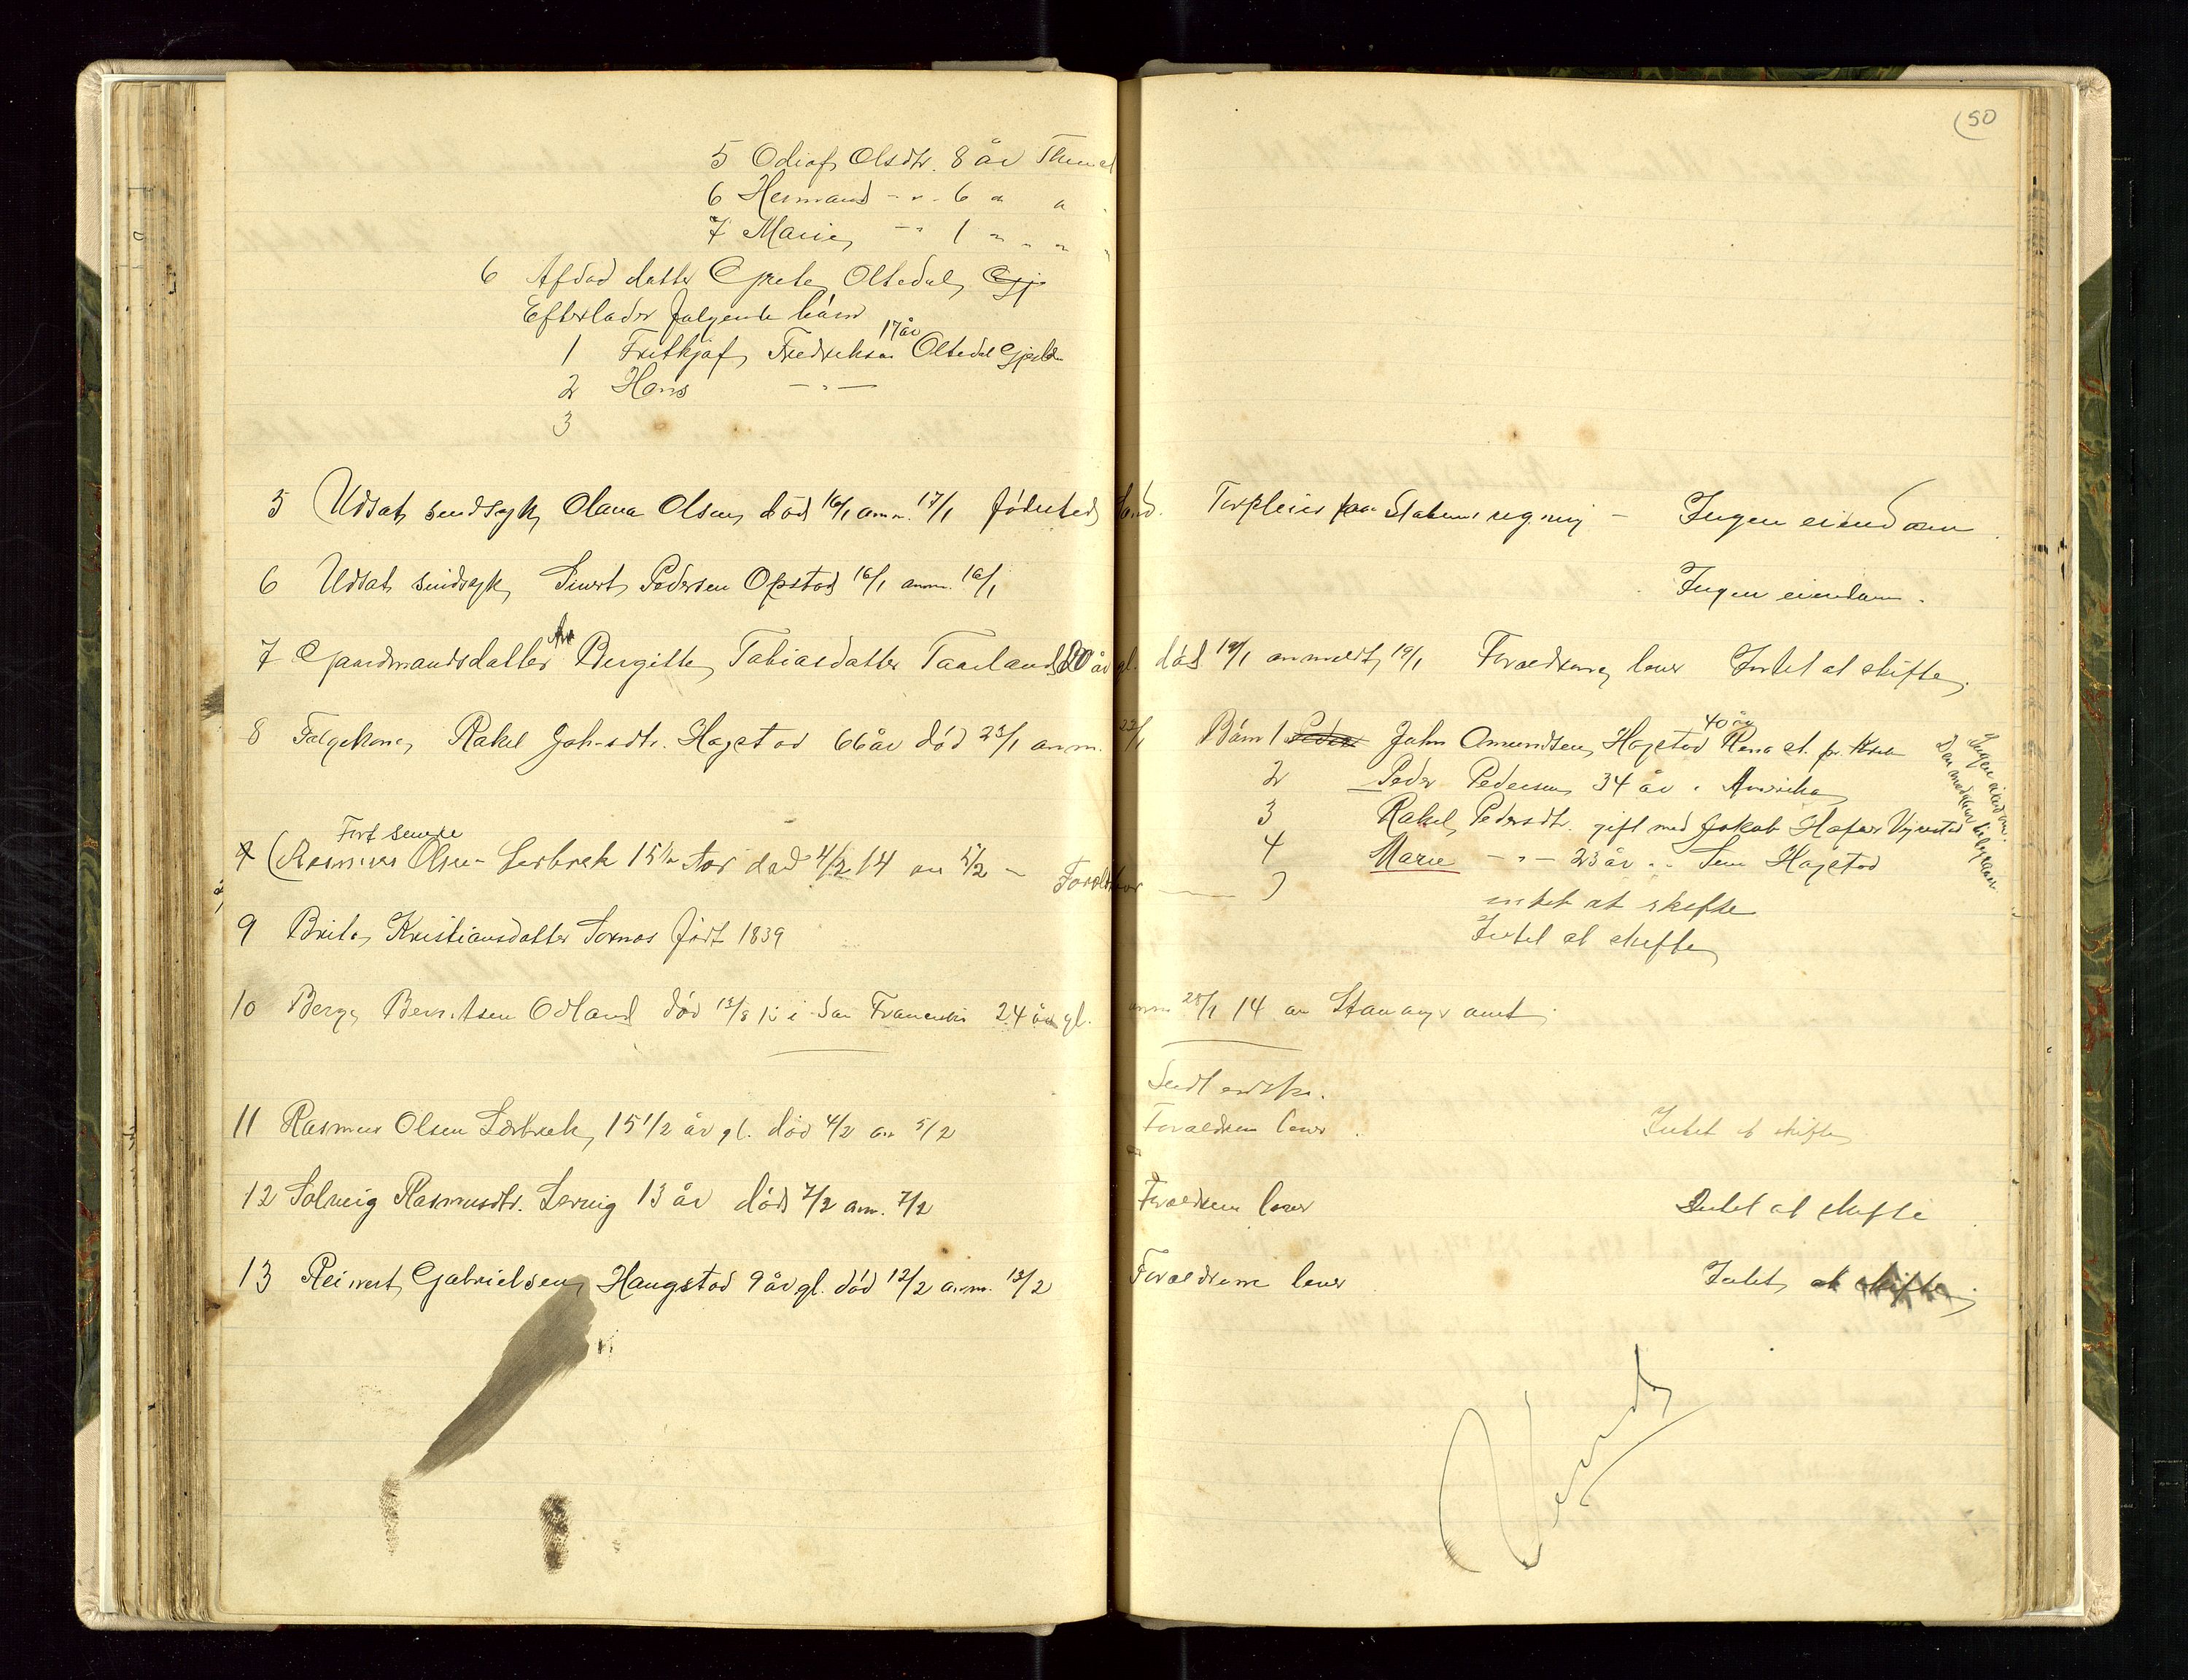 50
5 Odiof Olsdtr. 8 år
6 Hermand - " - 6 " "
7 Marie - " 1 " " "
6 Afdød datter Grete Oltedal
Efterlader følgende børn
17 år
1 Fritkjof Fredriksen Oltedal Gjesdal
2 Hans — " —
3
5 Udsat sindsyk Olava Olsen død 16/1 anm. 17/1 fødested Sand. Forpleies paa Statens regning — Ingen eiendom
6 Udsat sindsyk Sivert Pedersen Opstad 16/1 anm. 16/1 Ingen eiendom.
7 Gaardmandsdatter Bergitte Tobiasdatter Taarland 20 år gl. død 19/1 anmeldt 19/1 Foraeldrene lever Intet at skifte.
8 Folgekone Rakel Johnsdtr. Hogstad 66 år død 23/1 anm. 23/1 Børn 1 John Omundsen Hogstad 40 år
2 Peder Pedersen 34 år i Amerika
3 Rakel Pedersdtr. gift med Jakob
4 Marie - " - 23 år Hogstad
Intet at skifte
Fort senere
(Rasmus Olsen Lerbrek 15 1/2 død 4/2 14 an 5/2 —
9 Brita Kristiansdatter Sornes født 1839 Intet at skifte
10 Berge Berntsen Odland død 13/8 i San Francisco 24 år gl. anm 28/1 14 av Stavanger amt.
11 Rasmus Olsen Lerbrek, 15 1/2 år gl. død 4/2 an 5/2 Foraeldrene lever. Intet at skifte
12 Solveig Rasmusdtr. Lervig 13 år død 7/2 anm. 7/2 Foraeldrene lever Intet at skifte
13 Reinert Gabrielsen Haugstad 9 år gl. død 12/2 anm. 13/2 Foraeldrene lever Intet at skifte.